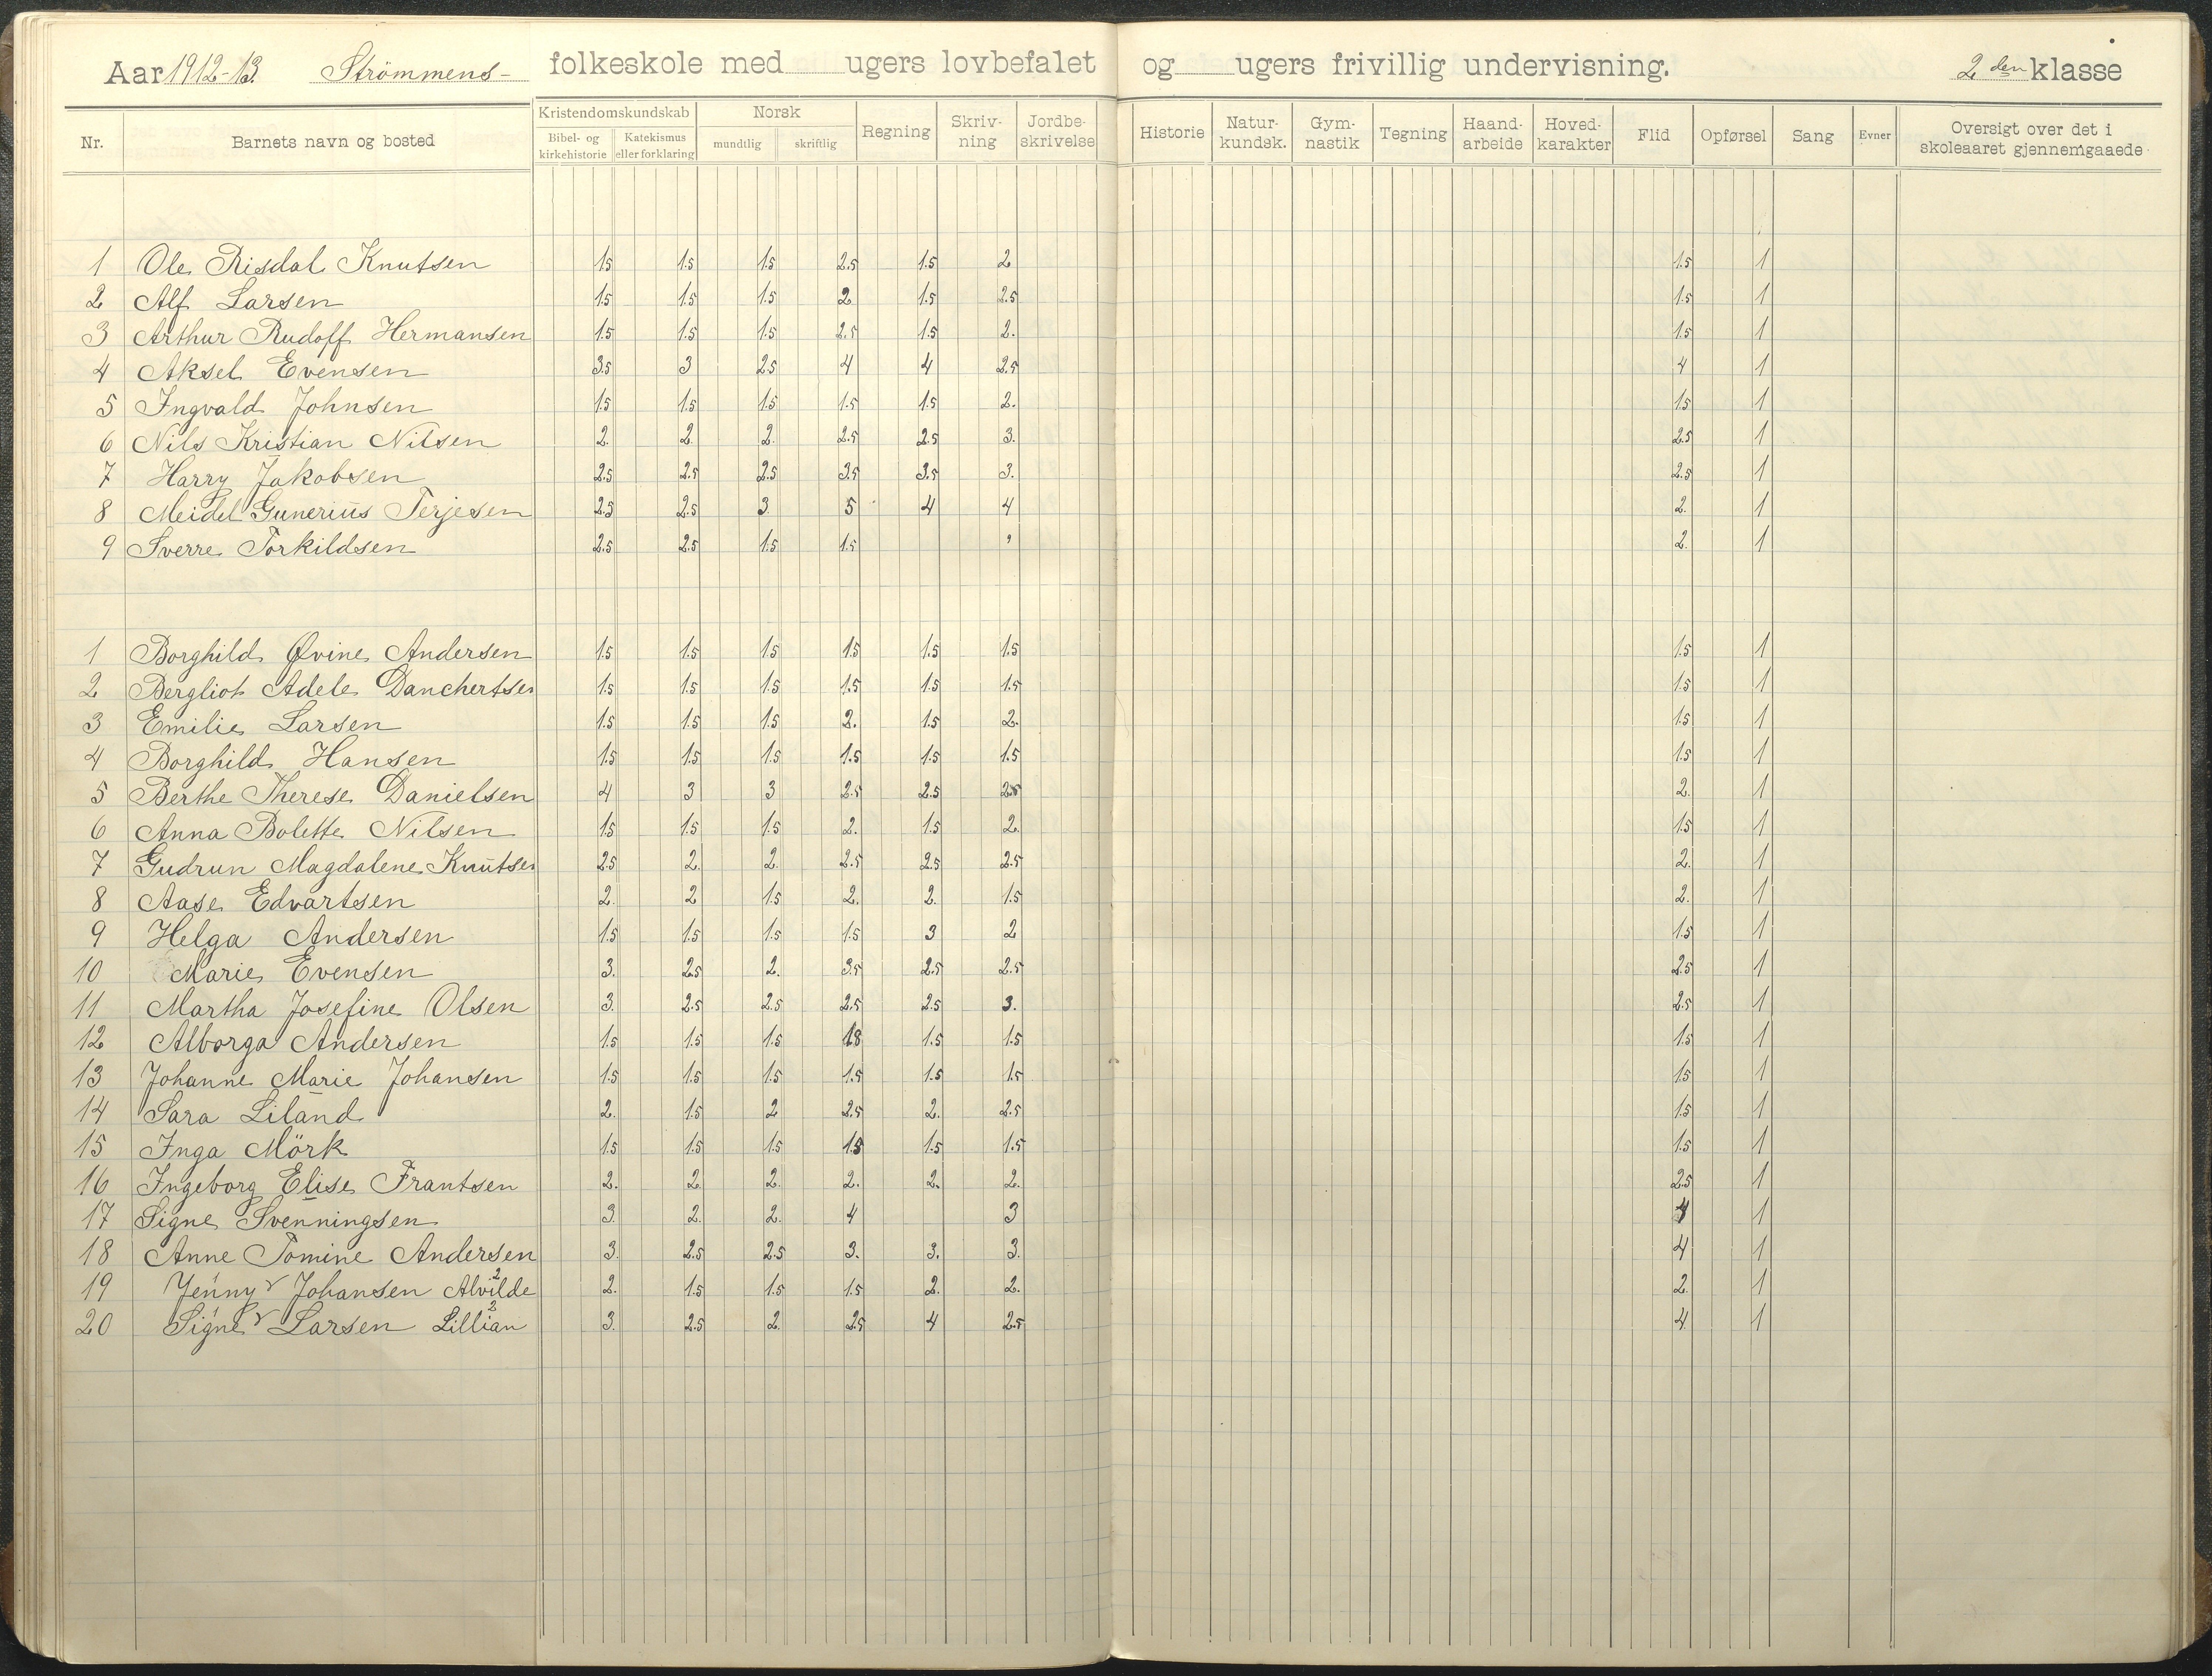 Aar 1912-13. Strömmens- folkeskole med ugers lovbefalet og ugers frivillig undervisning. 2 den klasse
Nr. Barnets navn og bosted Kristendomskundskab Bibel- og kirkehistorie Katekismus eller forklaring Norsk mundtlig skriftlig Regning Skriv-ning Jordbe-skrivelse Historie Natur-kundsk. Gym-nastik Tegning Haand-arbeide Hoved-karakter Flid Opførsel Sang Evner Oversigt over det i skoleaaret gjennemgaaede
1 Ole Risdal Knutsen 1.5 1.5 1.5 2.5 1.5 2 1.5 1
2 Alf Larsen 1.5 1.5 1.5 2 1.5 2.5 1.5 1
3 Arthur Rudolf Hermansen 1.5 1.5 1.5 2.5 1.5 2. 1.5 1
4 Aksel Evensen 3.5 3 2.5 4 4 2.5 4 1
5 Ingvald Johnsen 1.5 1.5 1.5 1.5 1.5 2. 1.5 1
6 Nils Kristian Nilsen 2. 2. 2. 2.5 2.5 3. 2.5 1
7 Harry Jakobsen 2.5 2.5 2.5 3.5 3.5 3. 2.5 1
8 Meidel Gunerius Terjesen 2.5 2.5 3. 5 4 4 2. 1
9 Sverre Torkildsen 2.5 2.5 1.5 1.5 2. 1
1 Borghild Øvine Andersen 1.5 1.5 1.5 1.5 1.5 1.5 1.5 1
2 Bergliot Adele Danchertsen 1.5 1.5 1.5 1.5 1.5 1.5 1.5 1
3 Emilie Larsen 1.5 1.5 1.5 2. 1.5 2. 1.5 1
4 Borghild Hansen 1.5 1.5 1.5 1.5 1.5 1.5 1.5 1
5 Berthe Therese Danielsen 4 3 3 2.5 2.5 2.5 2. 1
6 Anna Bolette Nilsen 1.5 1.5 1.5 2. 1.5 2. 1.5 1
7 Gudrun Magdalene Knutsen 2.5 2. 2. 2.5 2.5 2.5 2. 1
8 Aase Edvartsen 2. 2 1.5 2. 2. 1.5 2. 1
9 Helga Andersen 1.5 1.5 1.5 1.5 3 2 1.5 1
10 Marie Evensen 3. 2.5 2. 3.5 2.5 2.5 2.5 1
11 Martha Josefine Olsen 3. 2.5 2.5 2.5 2.5 3. 2.5 1
12 Alborga Andersen 1.5 1.5 1.5 1.8 1.5 1.5 1.5 1
13 Johanne Marie Johansen 1.5 1.5 1.5 1.5 1.5 1.5 1.5 1
14 Sara Liland 2. 1.5 2 2.5 2. 2.5 1.5 1
15 Inga Mörk 1.5 1.5 1.5 1.5 1.5 1.5 1.5 1
16 Ingeborg Elise Frantsen 2. 2. 2. 2. 2. 2. 2.5 1
17 Signe Svenningsen 3. 2. 2. 4 3 4 1
18 Anne Tomine Andersen 3. 2.5 2.5 3. 3. 3. 4 1
19 Jenny Johansen Alvilde 2 2. 1.5 1.5 1.5 2. 2. 2. 1
20 Signe Larsen Lillian 2 3. 2.5 2. 2.5 4 2.5 4 1